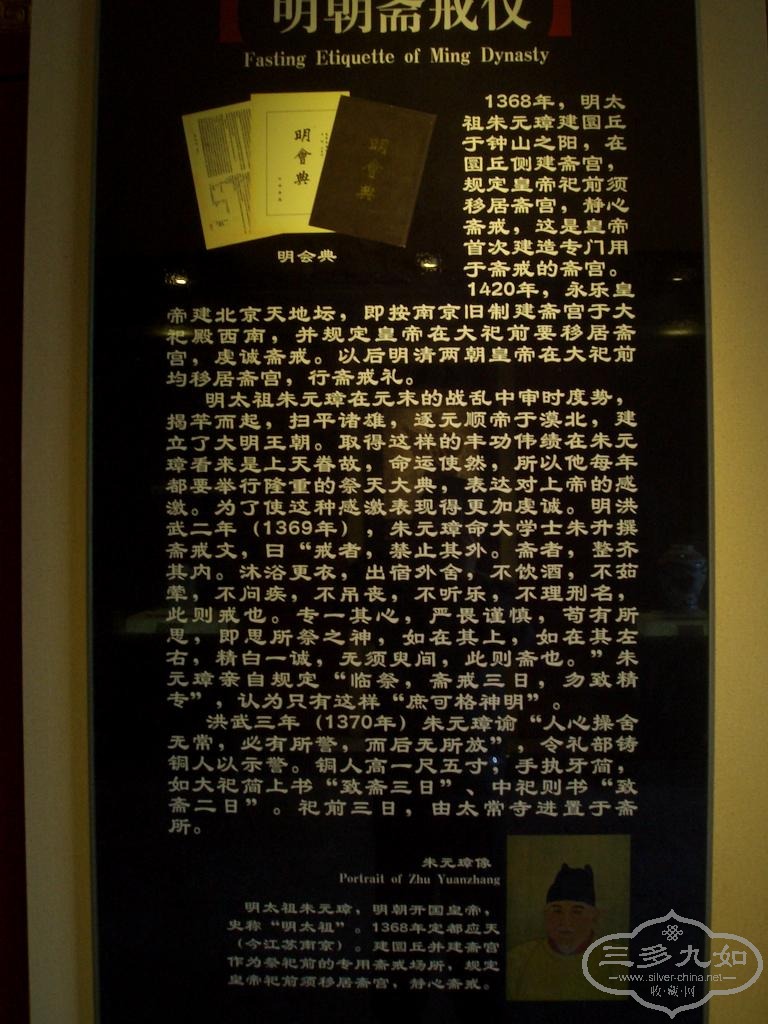 明朝斋戒仪
Fasting Etiquette of Ming Dynasty
明會典
明會典
明会典
1368年，明太
祖朱元璋建圜丘
于钟山之阳，在
圜丘侧建斋宫，
规定皇帝祀前须
移居斋宫，静心
斋戒，这是皇帝
首次建造专门用
于斋戒的斋宫。
1420年，永乐皇
帝建北京天地坛，即按南京旧制建斋宫于大
祀殿西南，并规定皇帝在大祀前要移居斋
宫，虔诚斋戒。以后明清两朝皇帝在大祀前
均移居斋宫，行斋戒礼。
明太祖朱元璋在元末的战乱中审时度势，
揭竿而起，扫平诸雄，逐元顺帝于漠北，建
立了大明王朝。取得这样的丰功伟绩在朱元
璋看来是上天眷故，命运使然，所以他每年
都要举行隆重的祭天大典，表达对上帝的感
激。为了使这种感激表现得更加虔诚。明洪
武二年（1369年），朱元璋命大学士朱升撰
斋戒文，曰“戒者，禁止其外。斋者，整齐
其内。沐浴更衣，出宿外舍，不饮酒，不茹
荤，不问疾，不吊丧，不听乐，不理刑名，
此则戒也。专一其心，严畏谨慎，苟有所
思，即思所祭之神，如在其上，如在其左
右，精白一诚，无须臾间，此则斋也。”朱
元璋亲自规定“临祭，斋戒三日，勿致精
专”，认为只有这样“庶可格神明”。
洪武三年（1370年）朱元璋谕“人心操舍
无常，必有所警，而后无所放”，令礼部铸
铜人以示警。铜人高一尺五寸，手执牙简，
如大祀简上书“致斋三日”、中祀则书“致
斋二日”。祀前三日，由太常寺进置于斋
所。
朱元璋像
Portrait of Zhu Yuanzhang
明太祖朱元璋，明朝开国皇帝，
史称“明太祖”。1368年定都应天
（今江苏南京）。建圜丘并建斋宫
作为祭祀前的专用斋戒场所，规定
皇帝祀前须移居斋宫，静心斋戒。
三多九如
www.silver-china.net
收·藏·网